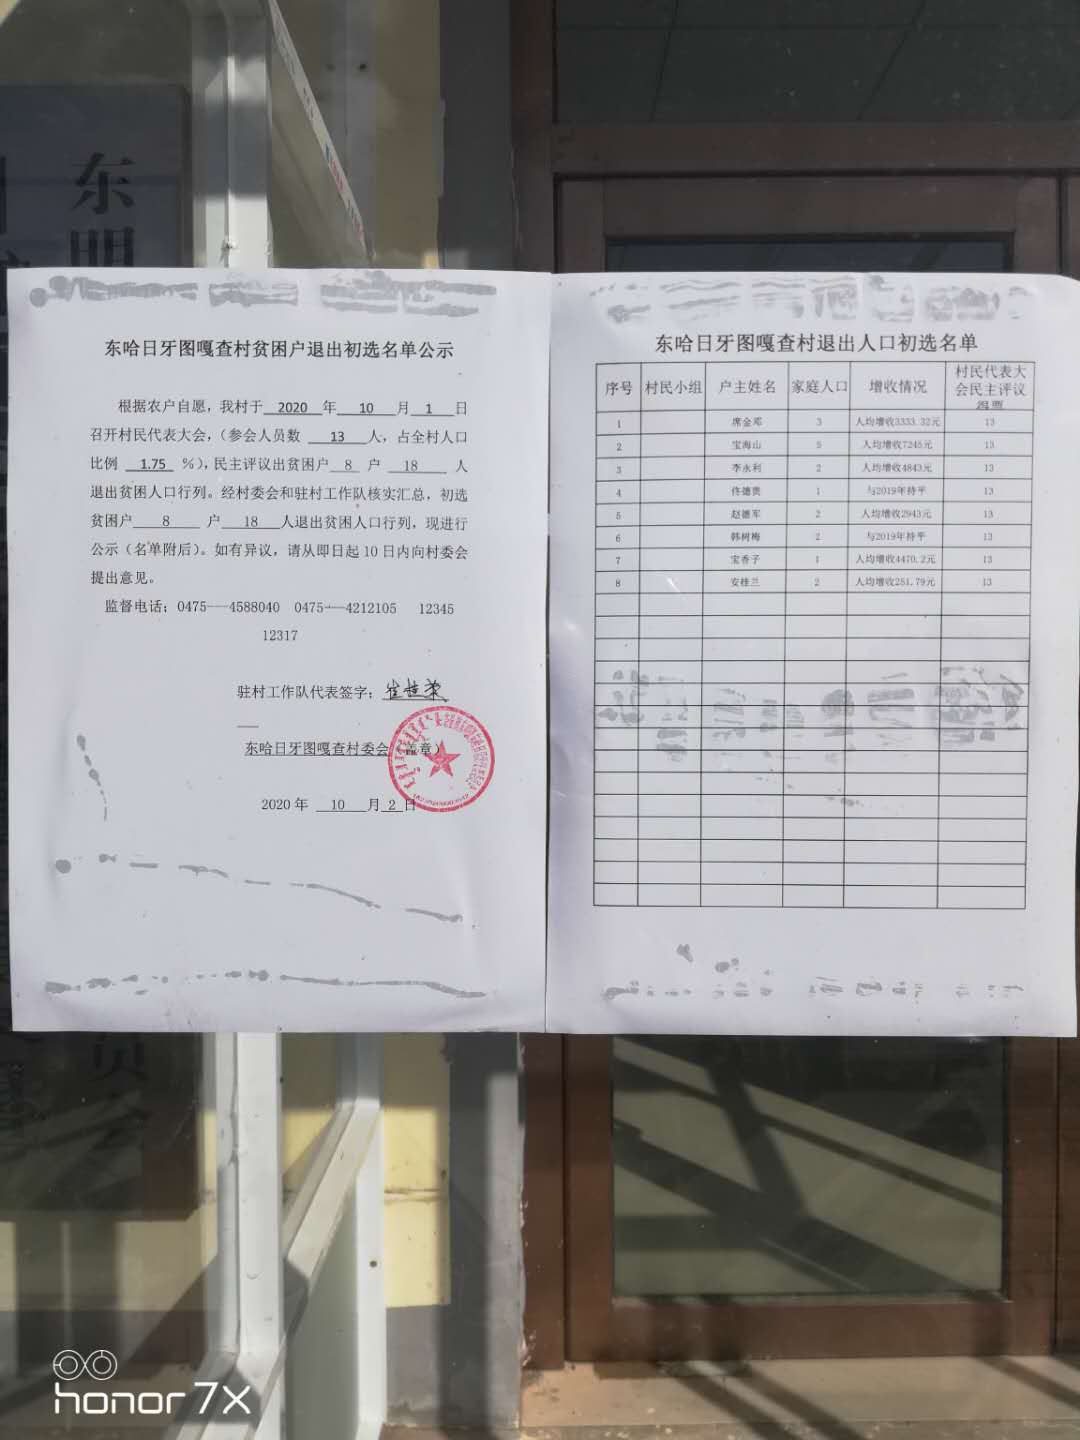 东明
东哈日牙图嘎查村贫困户退出初选名单公示
根据农户自愿，我村于 2020 年 10 月 1 日
召开村民代表大会，（参会人员数 13 人，占全村人口
比例 1.75 %），民主评议出贫困户 8 户 18 人
退出贫困人口行列。经村委会和驻村工作队核实汇总，初选
贫困户 8 户 18 人退出贫困人口行列，现进行
公示（名单附后）。如有异议，请从即日起10日内向村委会
提出意见。
监督电话：0475---4588040 0475---4212105 12345
12317
驻村工作队代表签字：
东哈日牙图嘎查村委会（盖章）
2020 年 10 月 2 日
东哈日牙图嘎查村退出人口初选名单
序号 村民小组 户主姓名 家庭人口 增收情况 村民代表大会民主评议得票
1 席金邓 3 人均增收3333.32元 13
2 宝海山 5 人均增收7245元 13
3 李永利 2 人均增收4843元 13
4 佟德贵 1 与2019年持平 13
5 赵德军 2 人均增收2943元 13
6 韩树梅 2 与2019年持平 13
7 宝香子 1 人均增收4470.2元 13
8 安桂兰 2 人均增收251.79元 13
honor 7X